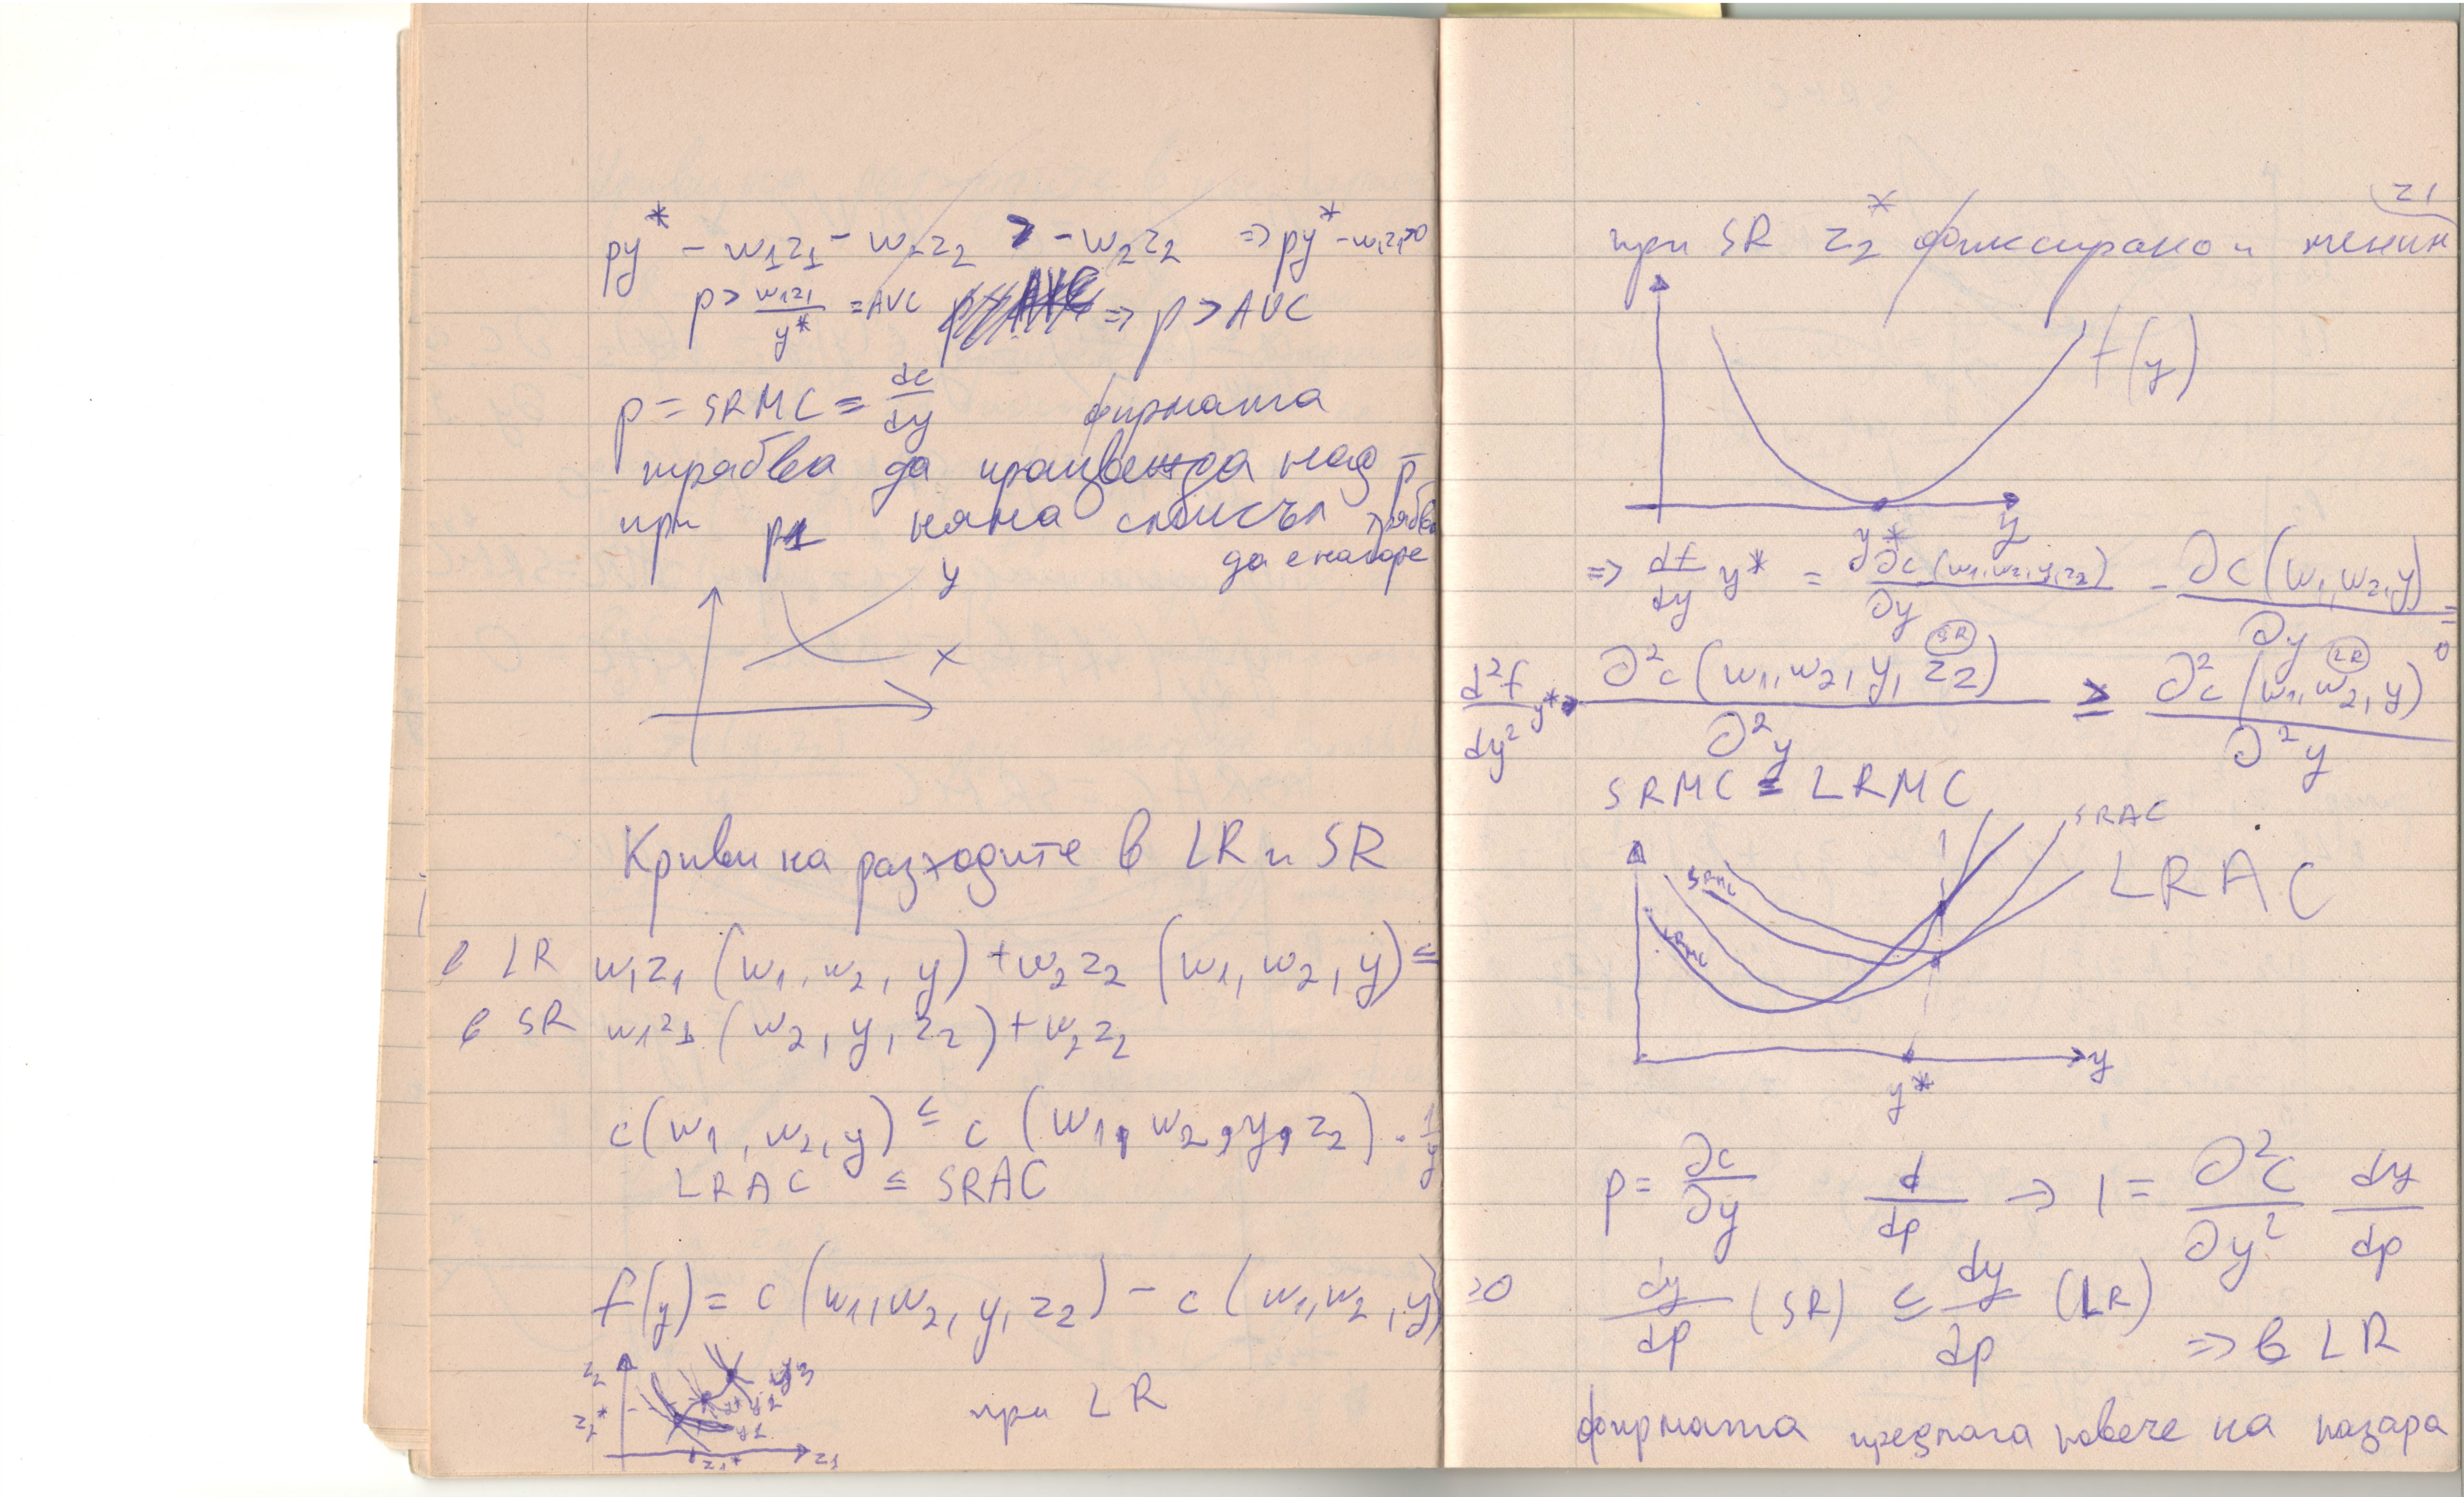 py* - w1z1 - w2z2 > - w2z2 => py* - w1z1>0
p > w1z1/y* = AVC => p > AVC
p = SRMC = dc/dy фирмата
трябва да произвежда над p̄
при p1 няма смисъл трябва
да е нагоре
y
x
Криви на разходите в LR и SR
в LR w1z1 (w1, w2, y) + w2z2 (w1, w2, y) ≤
в SR w1z1 (w2, y, z2) + w2z2
c(w1, w2, y) ≤ c (w1, w2, y, z2) . 1/y
LRAC ≤ SRAC
f(y) = c (w1, w2, y, z2) - c (w1, w2, y) ≥0
z2
y3
y2
z2*
y1
z1*
z1
при LR
z1
при SR z2* фиксирано и меним
f(y)
y* y
=> df/dy y* = ∂c (w1, w2, y, z2)/∂y - ∂c (w1, w2, y)/∂y = 0
d²f/dy² y* => ∂²c (w1, w2, y, z2)/∂²y SR ≥ ∂²c (w1, w2, y)/∂²y LR
SRMC = LRMC
SRAC
SRMC
LRAC
LRMC
y
y*
p = ∂c/∂y d/dp => 1 = ∂²c/∂y² dy/dp
dy/dp (SR) ≤ dy/dp (LR)
=> в LR
фирмата предлага повече на пазара